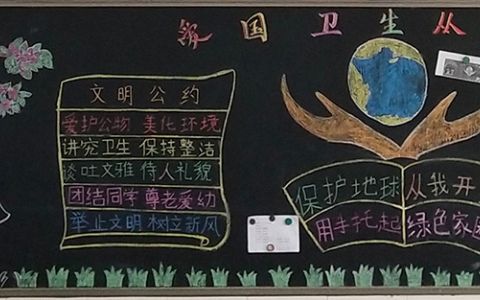 爱国卫生从
文明公约
爱护公物 美化环境
讲究卫生 保持整洁
谈吐文雅 侍人礼貌
团结同学 尊老爱幼
举止文明 树立新风
保护地球 从我开
用手托起 绿色家园